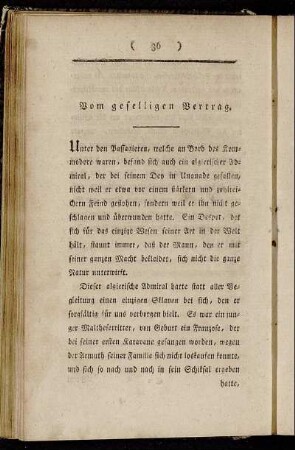 ( 36 )
Vom geselligen Vertrag.
Unter den Passagieren, welche an Bord des Kom-
modore waren, befand sich auch ein algierischer Ad-
miral, der bei seinem Dey in Ungnade gefallen,
nicht weil er etwa vor einem stärkern und zahlrei-
chern Feind geflohen, sondern weil er ihn nicht ge-
schlagen und überwunden hatte. Ein Despot, der
sich für das einzige Wesen seiner Art in der Welt
hält, staunt immer, daß der Mann, den er mit
seiner ganzen Macht bekleidet, sich nicht die ganze
Natur unterwirft.
Dieser algierische Admiral hatte statt aller Be-
gleitung einen einzigen Sklaven bei sich, den er
sorgfältig für uns verborgen hielt. Es war ein jun-
ger Maltheserritter, von Geburt ein Franzose, der
bei seiner ersten Karavane gefangen worden, wegen
der Armuth seiner Familie sich nicht loskaufen konnte,
und sich so nach und nach in sein Schiksal ergeben
hatte,